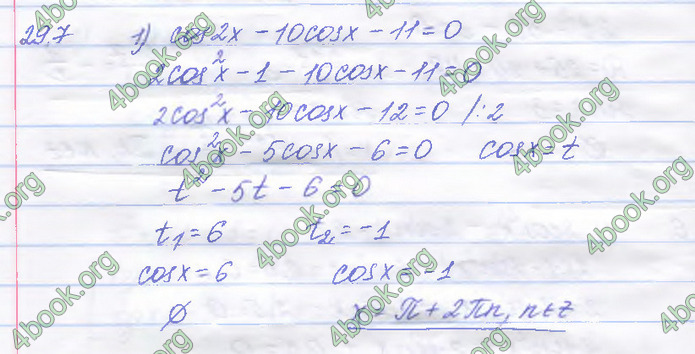 29.7 1) cos2x - 10cosx - 11 = 0
2cos²x - 1 - 10cosx - 11 = 0
2cos²x - 10cosx - 12 = 0 /:2
cos²x - 5cosx - 6 = 0 cosx = t
t² - 5t - 6 = 0
t₁ = 6 t₂ = -1
cosx = 6 cosx = -1
∅ x = π + 2πn, n∈z
4book.org